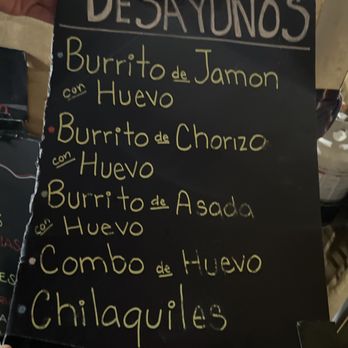 DESAYUNOS
• Burrito de Jamon
con Huevo
• Burrito de Chorizo
con Huevo
• Burrito de Asada
con Huevo
• Combo de Huevo
Chilaquiles